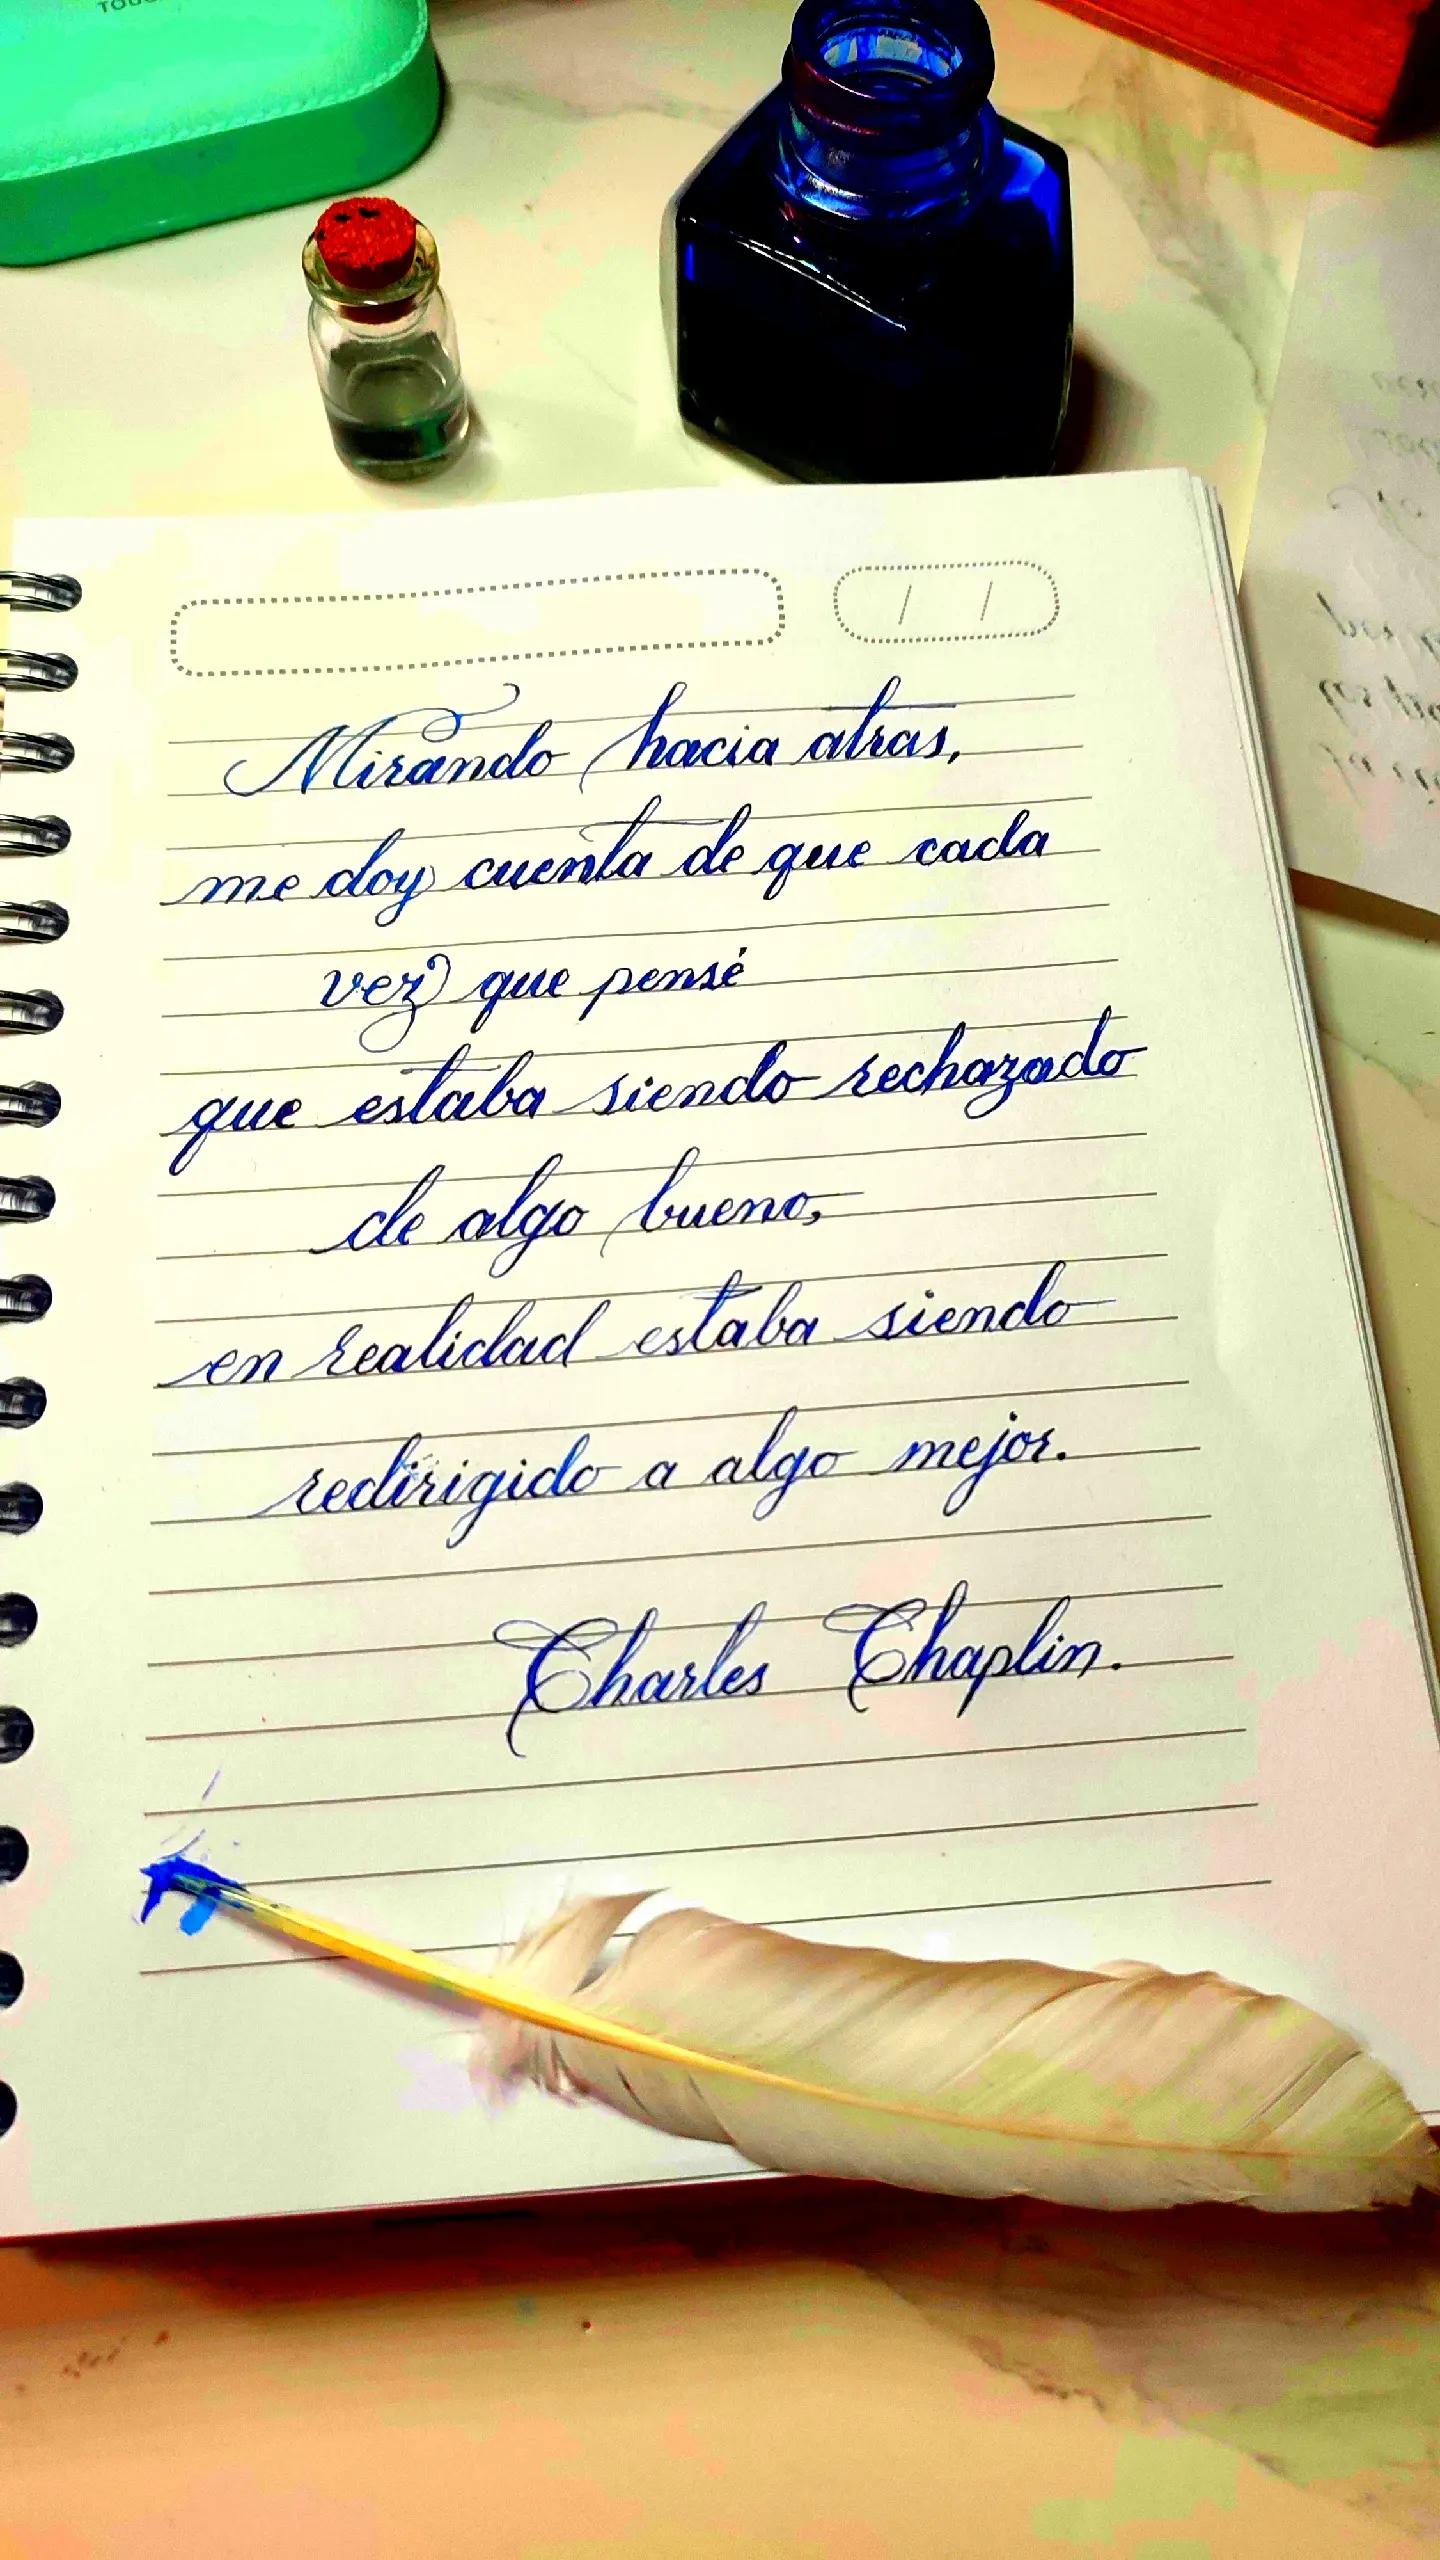 Mirando hacia atras,
me doy cuenta de que cada
vez que pensé
que estaba siendo rechazado
de algo bueno,
en realidad estaba siendo
redirigido a algo mejor.
Charles Chaplin.